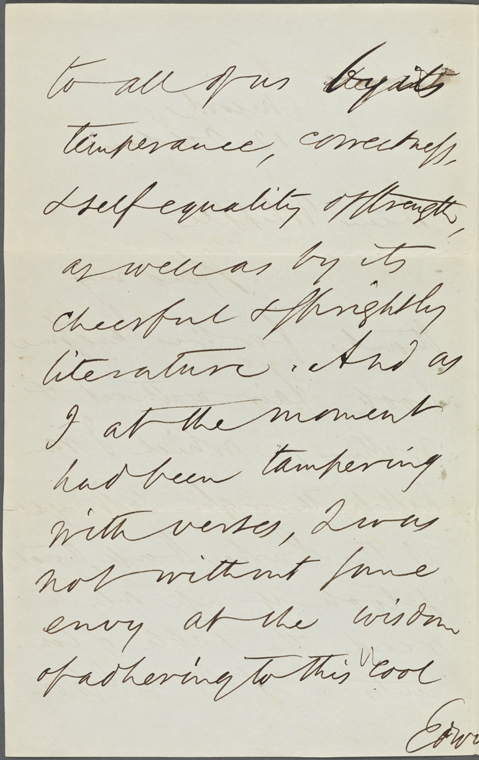 to all of us by its
temperance, correctness,
& self equality of strength,
as well as by its
cheerful & sprightly
literature. And as
I at the moment
had been tampering
with verses, I was
not without some
envy at the wisdom
of adhering to this cool